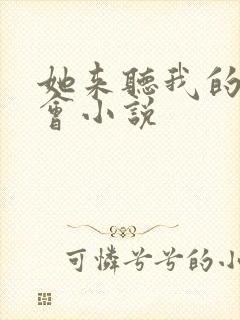 她来聽我的
會小說
可憐兮兮的小